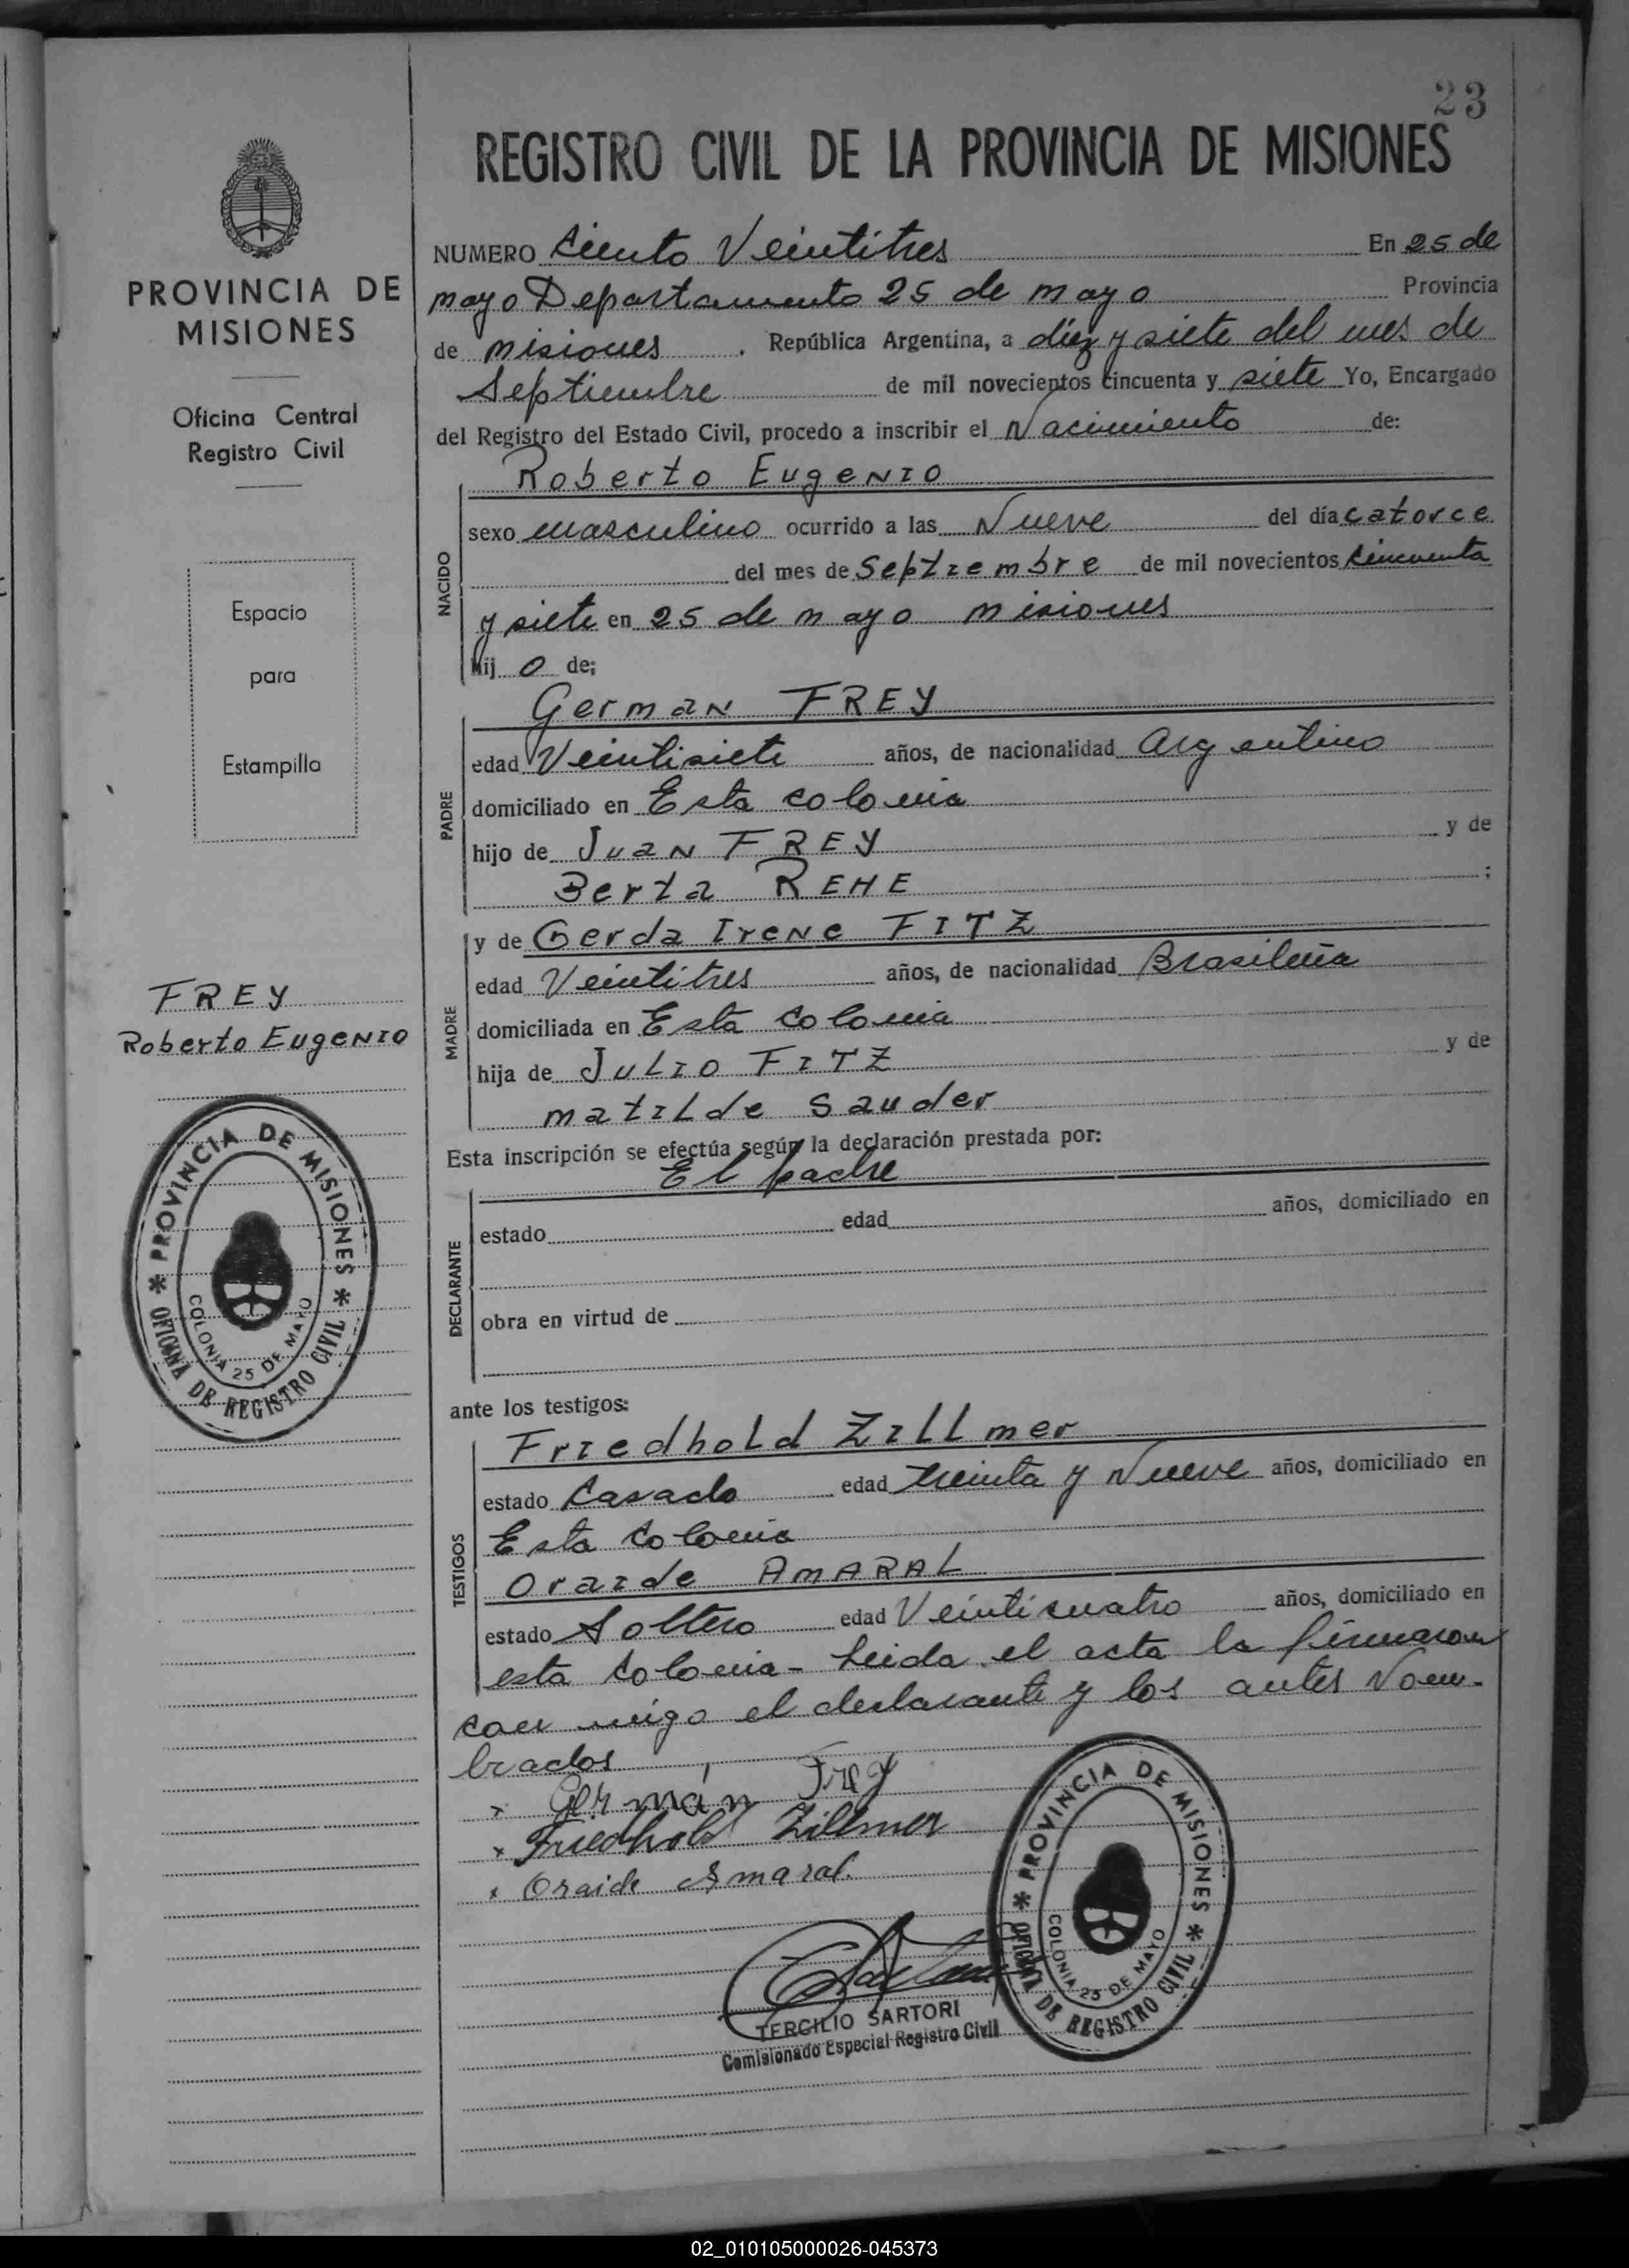 23
REGISTRO CIVIL DE LA PROVINCIA DE MISIONES
PROVINCIA DE
MISIONES
Oficina Central
Registro Civil
Espacio
para
Estampilla
FREY
Roberto Eugenio
* PROVINCIA DE MISIONES *
OFICINA DE REGISTRO CIVIL
COLONIA 25 DE MAYO
NUMERO Ciento Veintitres En 25 de
mayo Departamento 25 de mayo Provincia
de misiones . República Argentina, a diez y siete del mes de
Septiembre de mil novecientos cincuenta y siete Yo, Encargado
del Registro del Estado Civil, procedo a inscribir el Nacimiento de:
NACIDO
Roberto Eugenio
sexo masculino ocurrido a las Nueve del día catorce
del mes de Septiembre de mil novecientos cincuenta
y siete en 25 de mayo misiones
hijo de;
PADRE
German FREY
edad Veintisiete años, de nacionalidad Argentino
domiciliado en Esta colonia
hijo de Juan FREY y de
Berta REHE ;
MADRE
y de Gerda Irene FITZ
edad Veintitres años, de nacionalidad Brasileña
domiciliada en Esta colonia
hija de JULIO FITZ y de
matilde Sauder
Esta inscripción se efectúa según la declaración prestada por:
DECLARANTE
El padre
estado edad años, domiciliado en
obra en virtud de
ante los testigos:
TESTIGOS
Friedhold Zillmer
estado Casado edad treinta y Nueve años, domiciliado en
Esta Colonia
Oraide AMARAL
estado Soltero edad Veinticuatro años, domiciliado en
esta Colonia - Leida el acta la firmaron
con migo el declarante y los antes Nom-
brados
x Germán Frey
x Friedhold Zillmer
x Oraide Amaral.
TERCILIO SARTORI
Comisionado Especial Registro Civil
* PROVINCIA DE MISIONES *
OFICINA DE REGISTRO CIVIL
COLONIA 25 DE MAYO
02_010105000026-045373